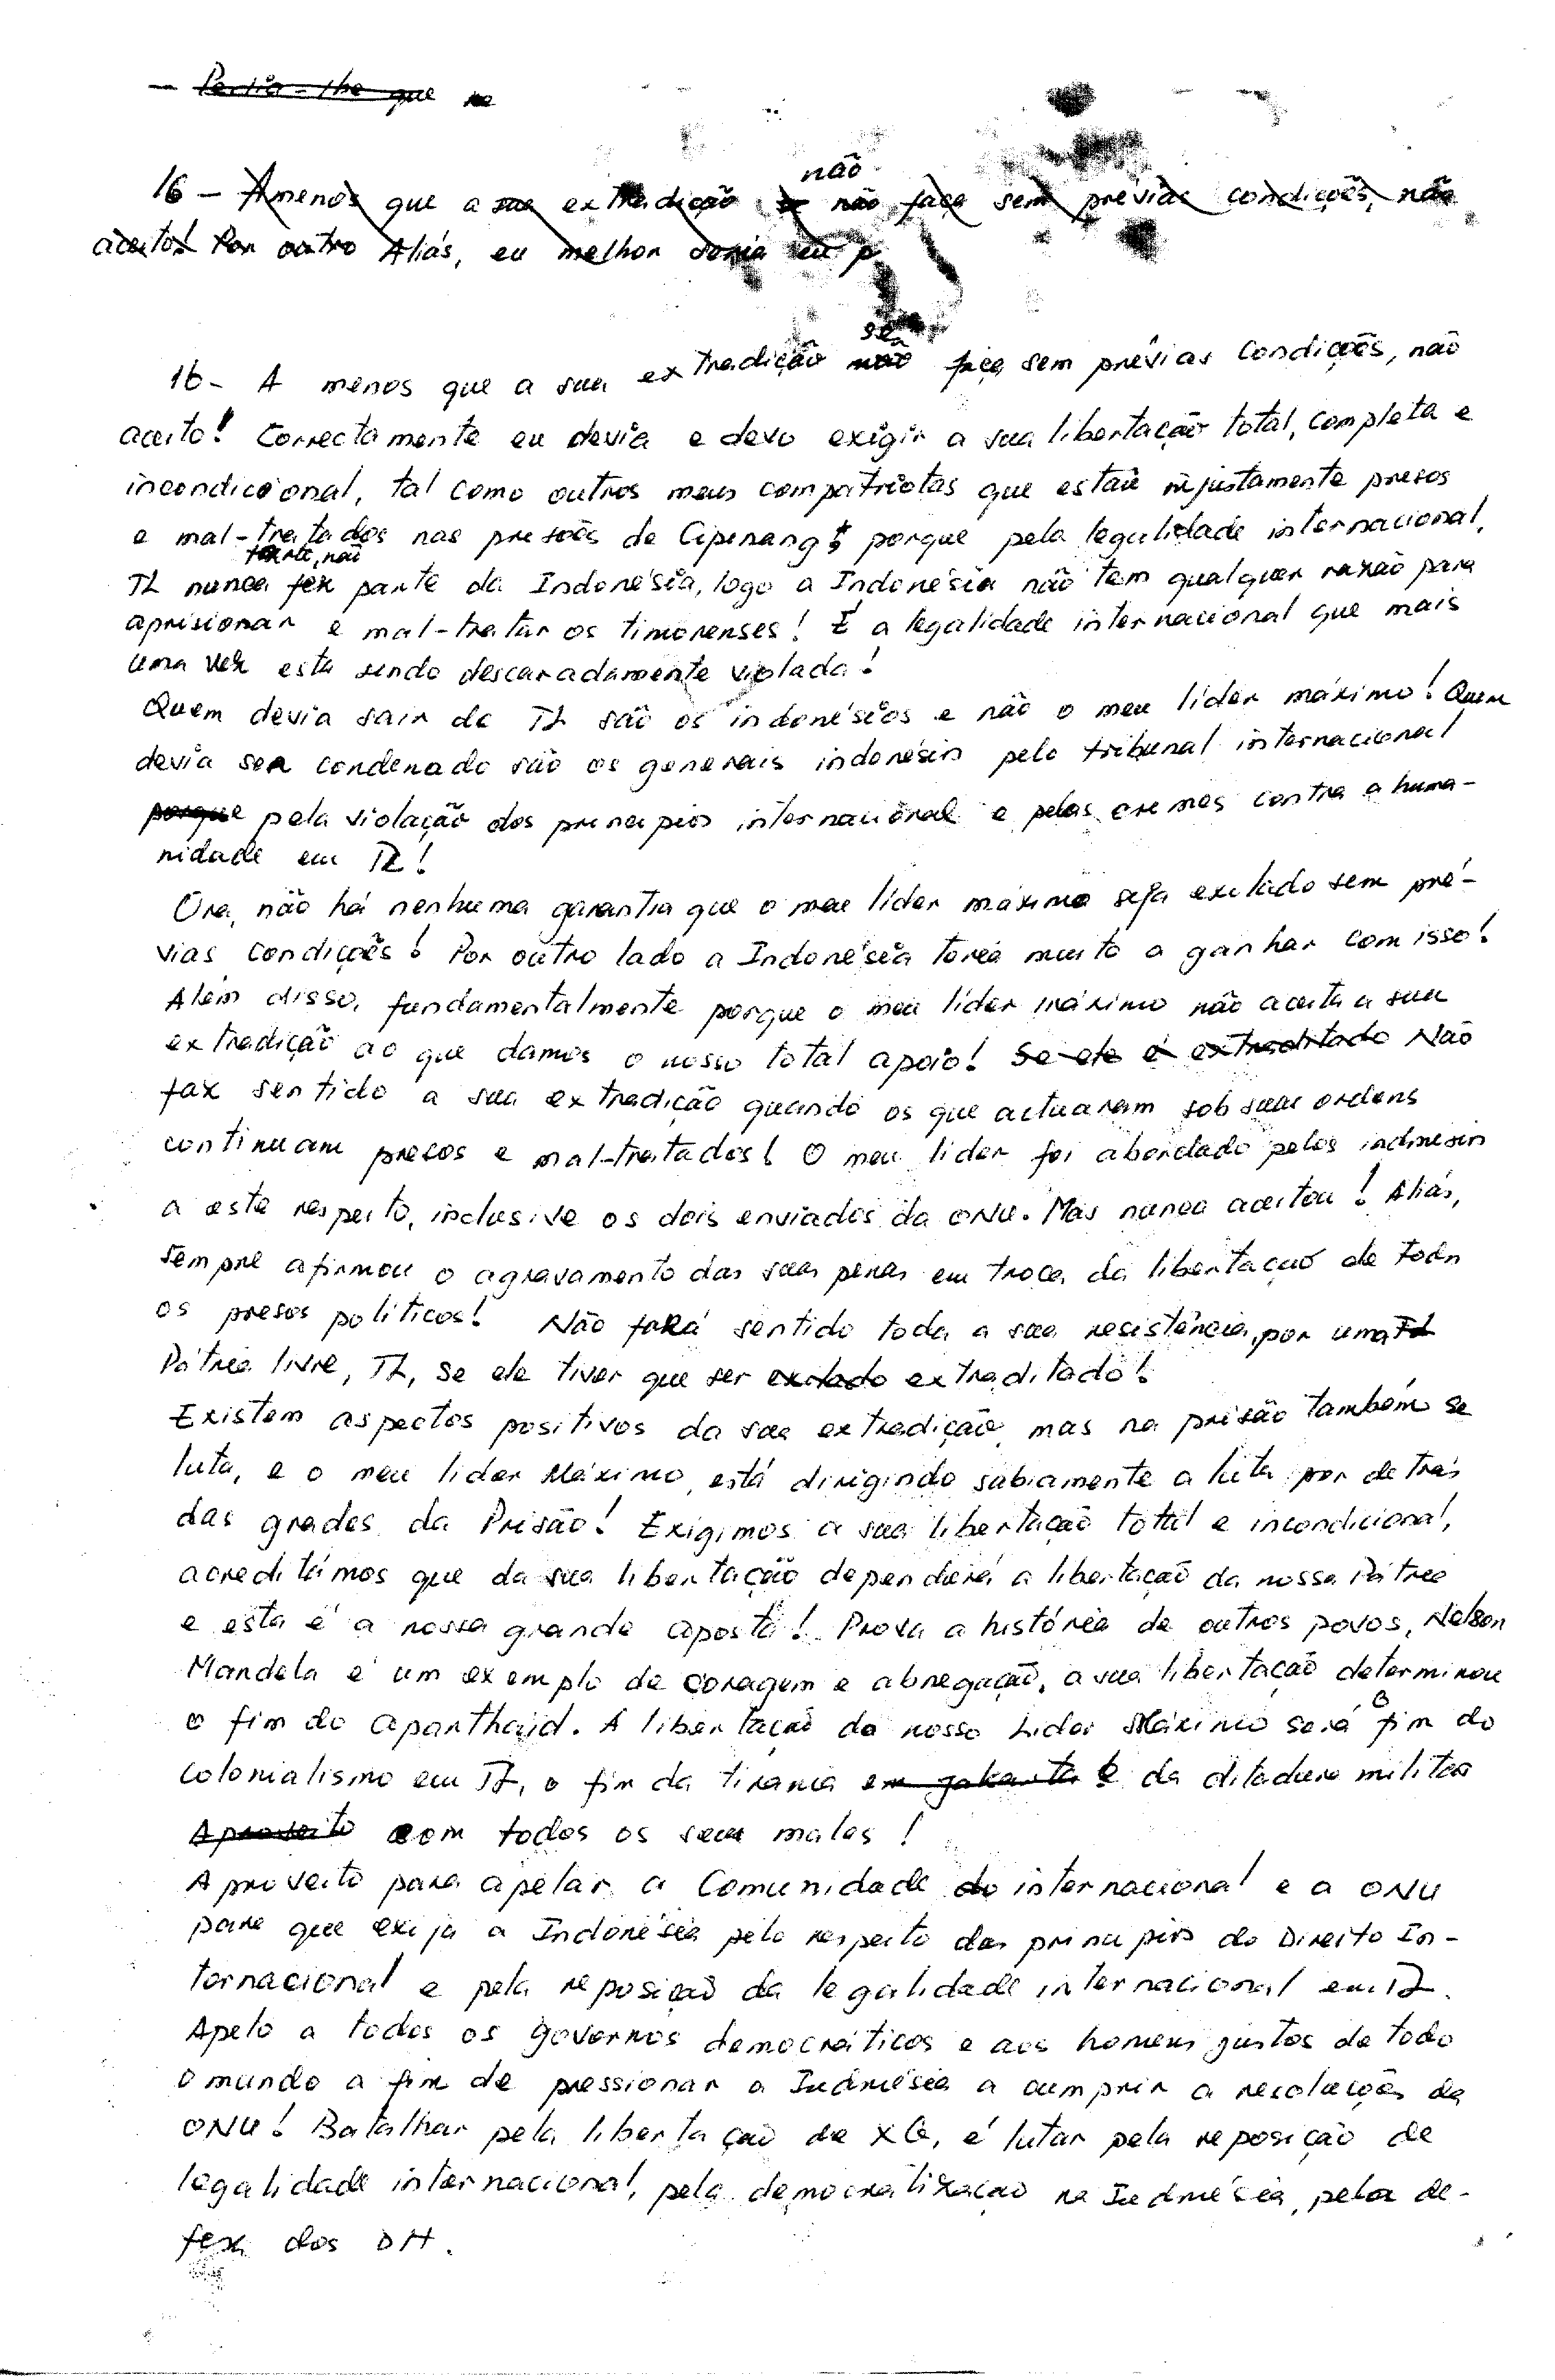 — Pedia-lhe que se
não
16 – Amenos que a sua extradição se não faça sem prévias condições, não
aceito! Por outro Aliás, eu melhor seria eu p
se
16 – A menos que a sua extradição não faça sem prévias condições, não
aceito! Correctamente eu devia e devo exigir a sua libertação total, completa e
incondicional, tal como outros meus compatriotas que estão injustamente presos
e mal-tratados nas prisões de Cipinang, porque pela legalidade internacional,
não
TL nunca fez parte da Indonésia, logo a Indonésia não tem qualquer razão para
aprisionar e mal-tratar os timorenses! É a legalidade internacional que mais
uma vez está sendo descaradamente violada!
Quem devia sair de TL são os indonésios e não o meu líder máximo! Quem
devia ser condenado são os generais indonésios pelo tribunal internacional
porque pela violação dos princípios internacional e pelos crimes contra a huma-
nidade em TL!
Ora, não há nenhuma garantia que o meu líder máximo seja exilado sem pré-
vias condições! Por outro lado a Indonésia teria muito a ganhar com isso!
Além disso, fundamentalmente porque o meu líder máximo não aceita a sua
extradição ao que damos o nosso total apoio! Se ele é extraditado Não
faz sentido a sua extradição quando os que actuaram sob suas ordens
continuam presos e mal-tratados! O meu líder foi abordado pelos indonésios
a este respeito, inclusive os dois enviados da ONU. Mas nunca aceitou! Aliás,
sempre afirmou o agravamento das suas penas em troca da libertação de todos
os presos políticos! Não fará sentido toda a sua resistência, por uma TL
Pátria livre, TL, se ele tiver que ser exilado extraditado!
Existem aspectos positivos da sua extradição, mas na prisão também se
luta, e o meu líder Máximo, está dirigindo sabiamente a luta por detrás
das grades da Prisão! Exigimos a sua libertação total e incondicional,
acreditámos que da sua libertação dependerá a libertação da nossa Pátria
e esta é a nossa grande aposta! Prova a história de outros povos, Nelson
Mandela é um exemplo de coragem e abnegação, a sua libertação determinou
o fim do aparthaid. A libertação do nosso Líder Máximo será o fim do
colonialismo em TL, o fim da tirania em jakarta e da ditadura militar
Aproveito com todos os seus males!
Aproveito para apelar a Comunidade do internacional e a ONU
para que exija a Indonésia pelo respeito dos princípios do Direito In-
ternacional e pela reposição da legalidade internacional em TL.
Apelo a todos os governos democráticos e aos homens justos de todo
o mundo a fim de pressionar a Indonésia a cumprir a resoluções da
ONU! Batalhar pela libertação de XG, é lutar pela reposição de
legalidade internacional, pela democratização na Indonésia, pela de-
fesa dos DH.